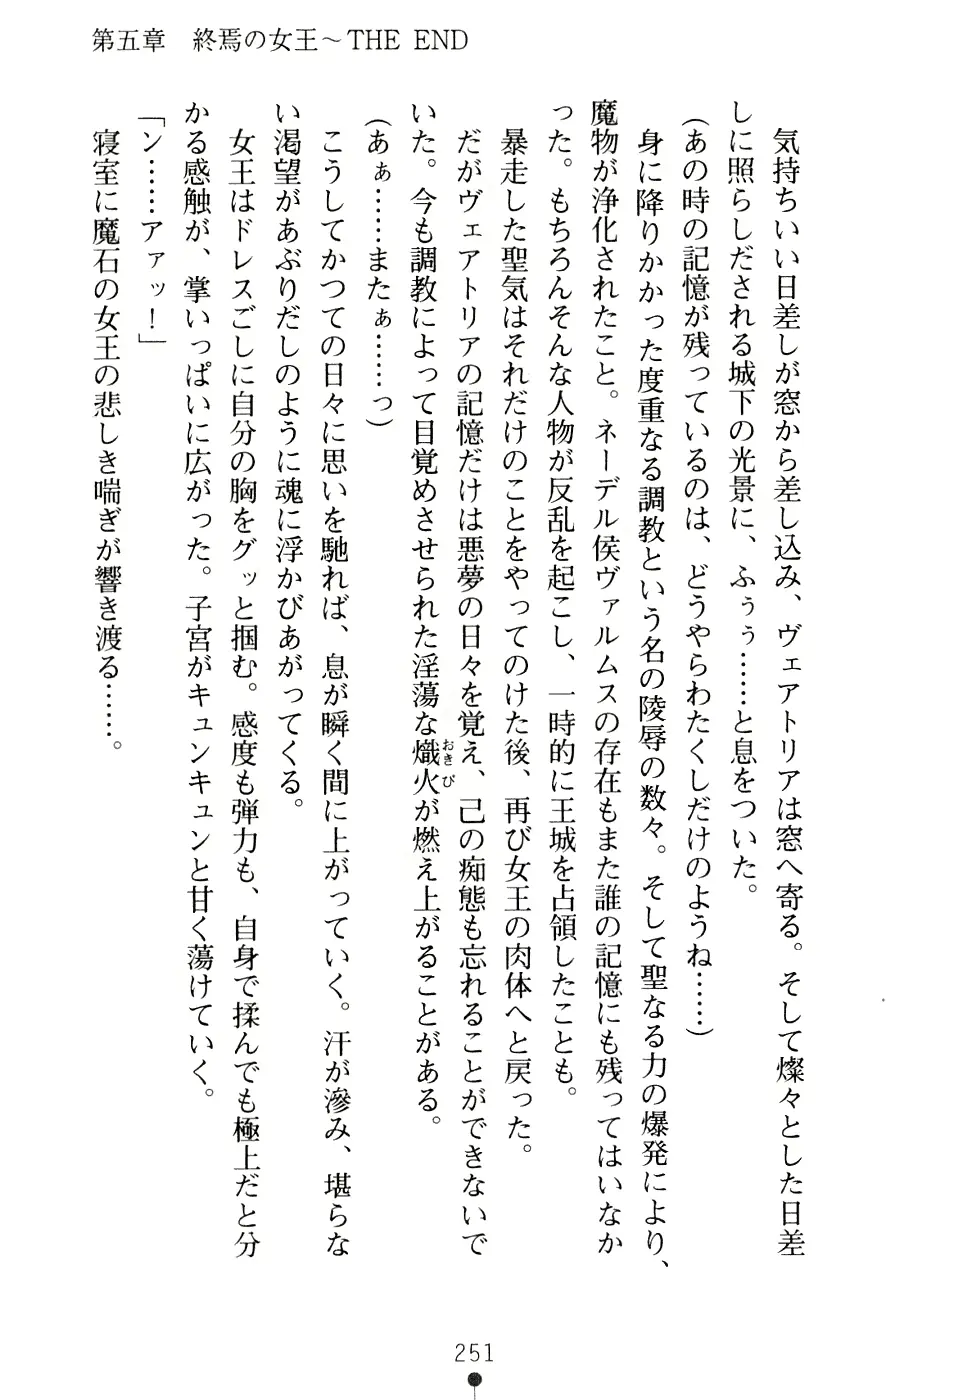 第五章　終焉の女王～THE END
　気持ちいい日差しが窓から差し込み、ヴェアトリアは窓へ寄る。そして燦々とした日差
しに照らしだされる城下の光景に、ふぅぅ……と息をついた。
(あの時の記憶が残っているのは、どうやらわたくしだけのようね……)
　身に降りかかった度重なる調教という名の陵辱の数々。そして聖なる力の爆発により、
魔物が浄化されたこと。ネーデル侯ヴァルムスの存在もまた誰の記憶にも残ってはいなか
った。もちろんそんな人物が反乱を起こし、一時的に王城を占領したことも。
　暴走した聖気はそれだけのことをやってのけた後、再び女王の肉体へと戻った。
　だがヴェアトリアの記憶だけは悪夢の日々を覚え、己の痴態も忘れることができないで
いた。今も調教によって目覚めさせられた淫蕩な熾火おきびが燃え上がることがある。
(あぁ……またぁ……っ)
　こうしてかつての日々に思いを馳れば、息が瞬く間に上がっていく。汗が滲み、堪らな
い渇望があぶりだしのように魂に浮かびあがってくる。
　女王はドレスごしに自分の胸をグッと掴む。感度も弾力も、自身で揉んでも極上だと分
かる感触が、掌いっぱいに広がった。子宮がキュンキュンと甘く蕩けていく。
「ン……アァッ！」
　寝室に魔石の女王の悲しき喘ぎが響き渡る……。
251